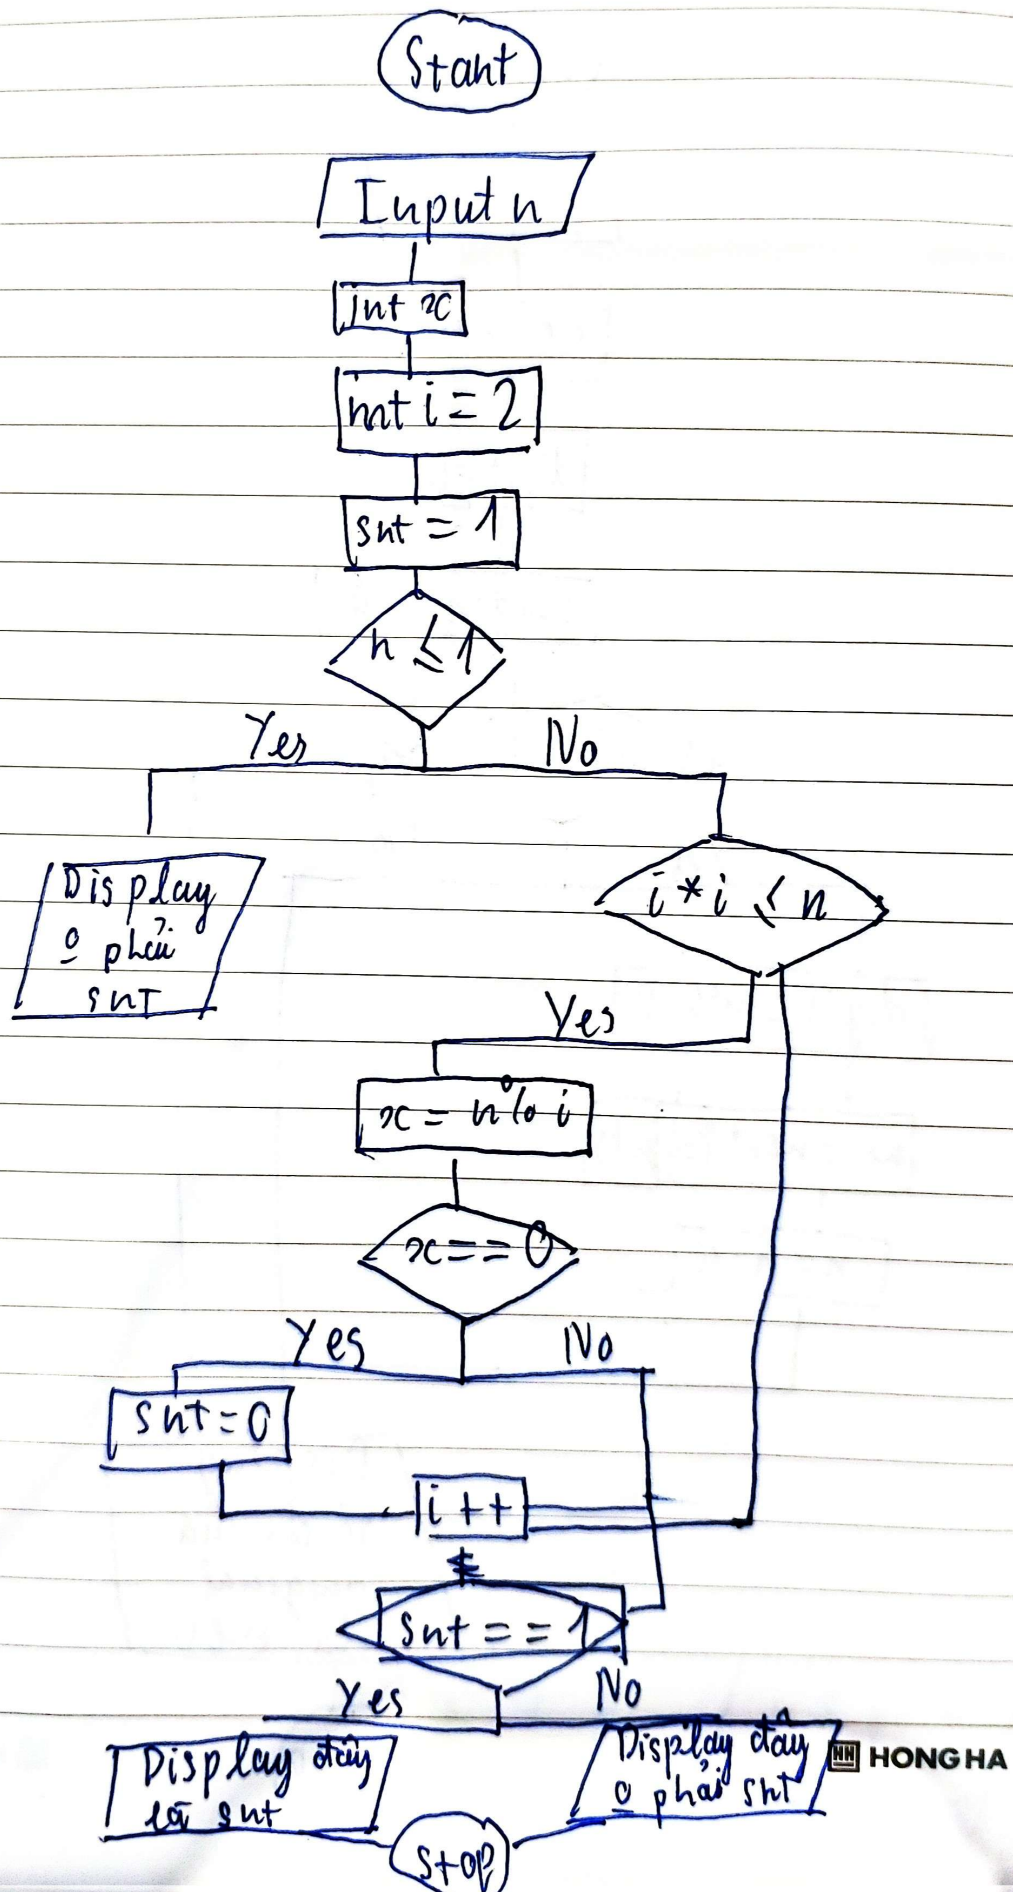 Start
Input n
int x
int i = 2
snt = 1
n ≤ 1
Yes
No
Display
o phải
snt
i * i ≤ n
Yes
x = n % i
x == 0
Yes
No
snt = 0
i ++
snt == 1
Yes
No
Display đây
là snt
Display đây
o phải snt
HH HONG HA
Stop